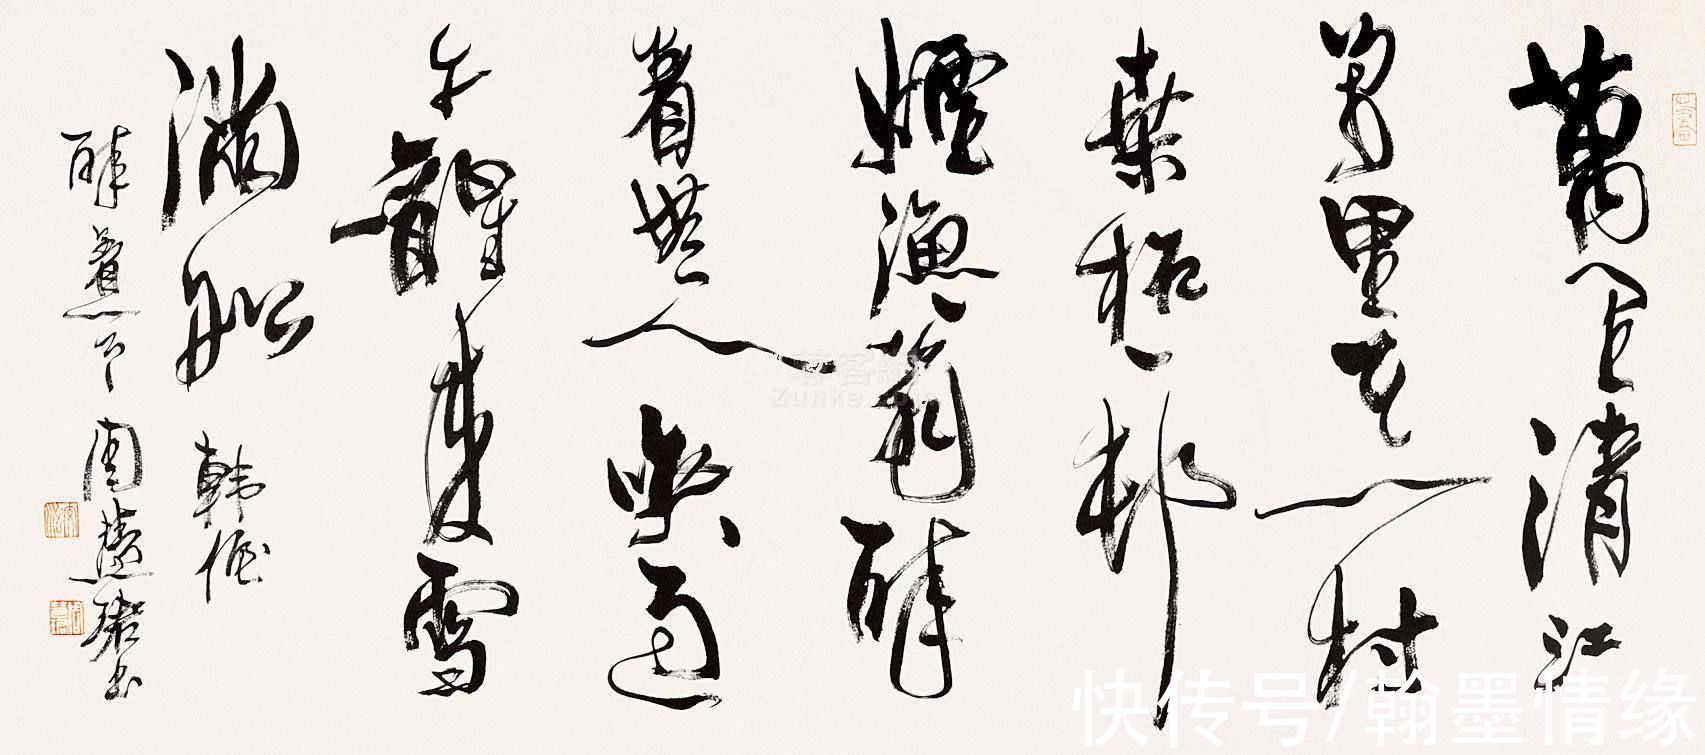 萬里清江
萬里天一村
桑柘一邨
煙漁翁醉
着無人喚過
午醒來雪
滿船 韓偓
醉着 周慧珺书
Zunke.com
快传号/翰墨情缘